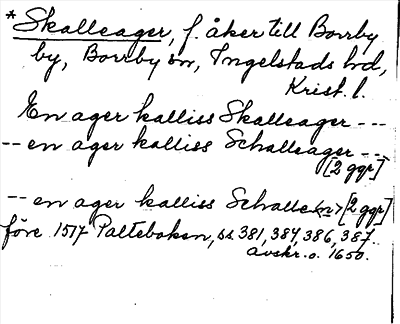 * Skalleager, f. åker till Borrby
by, Borrby sn, Ingelstads hd,
Krist. l.
En ager kalliss Skalleager ---
-- en ager kalliss Schalleager --
[2 ggr]
-- en ager kalliss Schalle<n> [2 ggr]
före 1517 Palteboken, ss. 381, 384, 386, 387.
avskr. o. 1650.